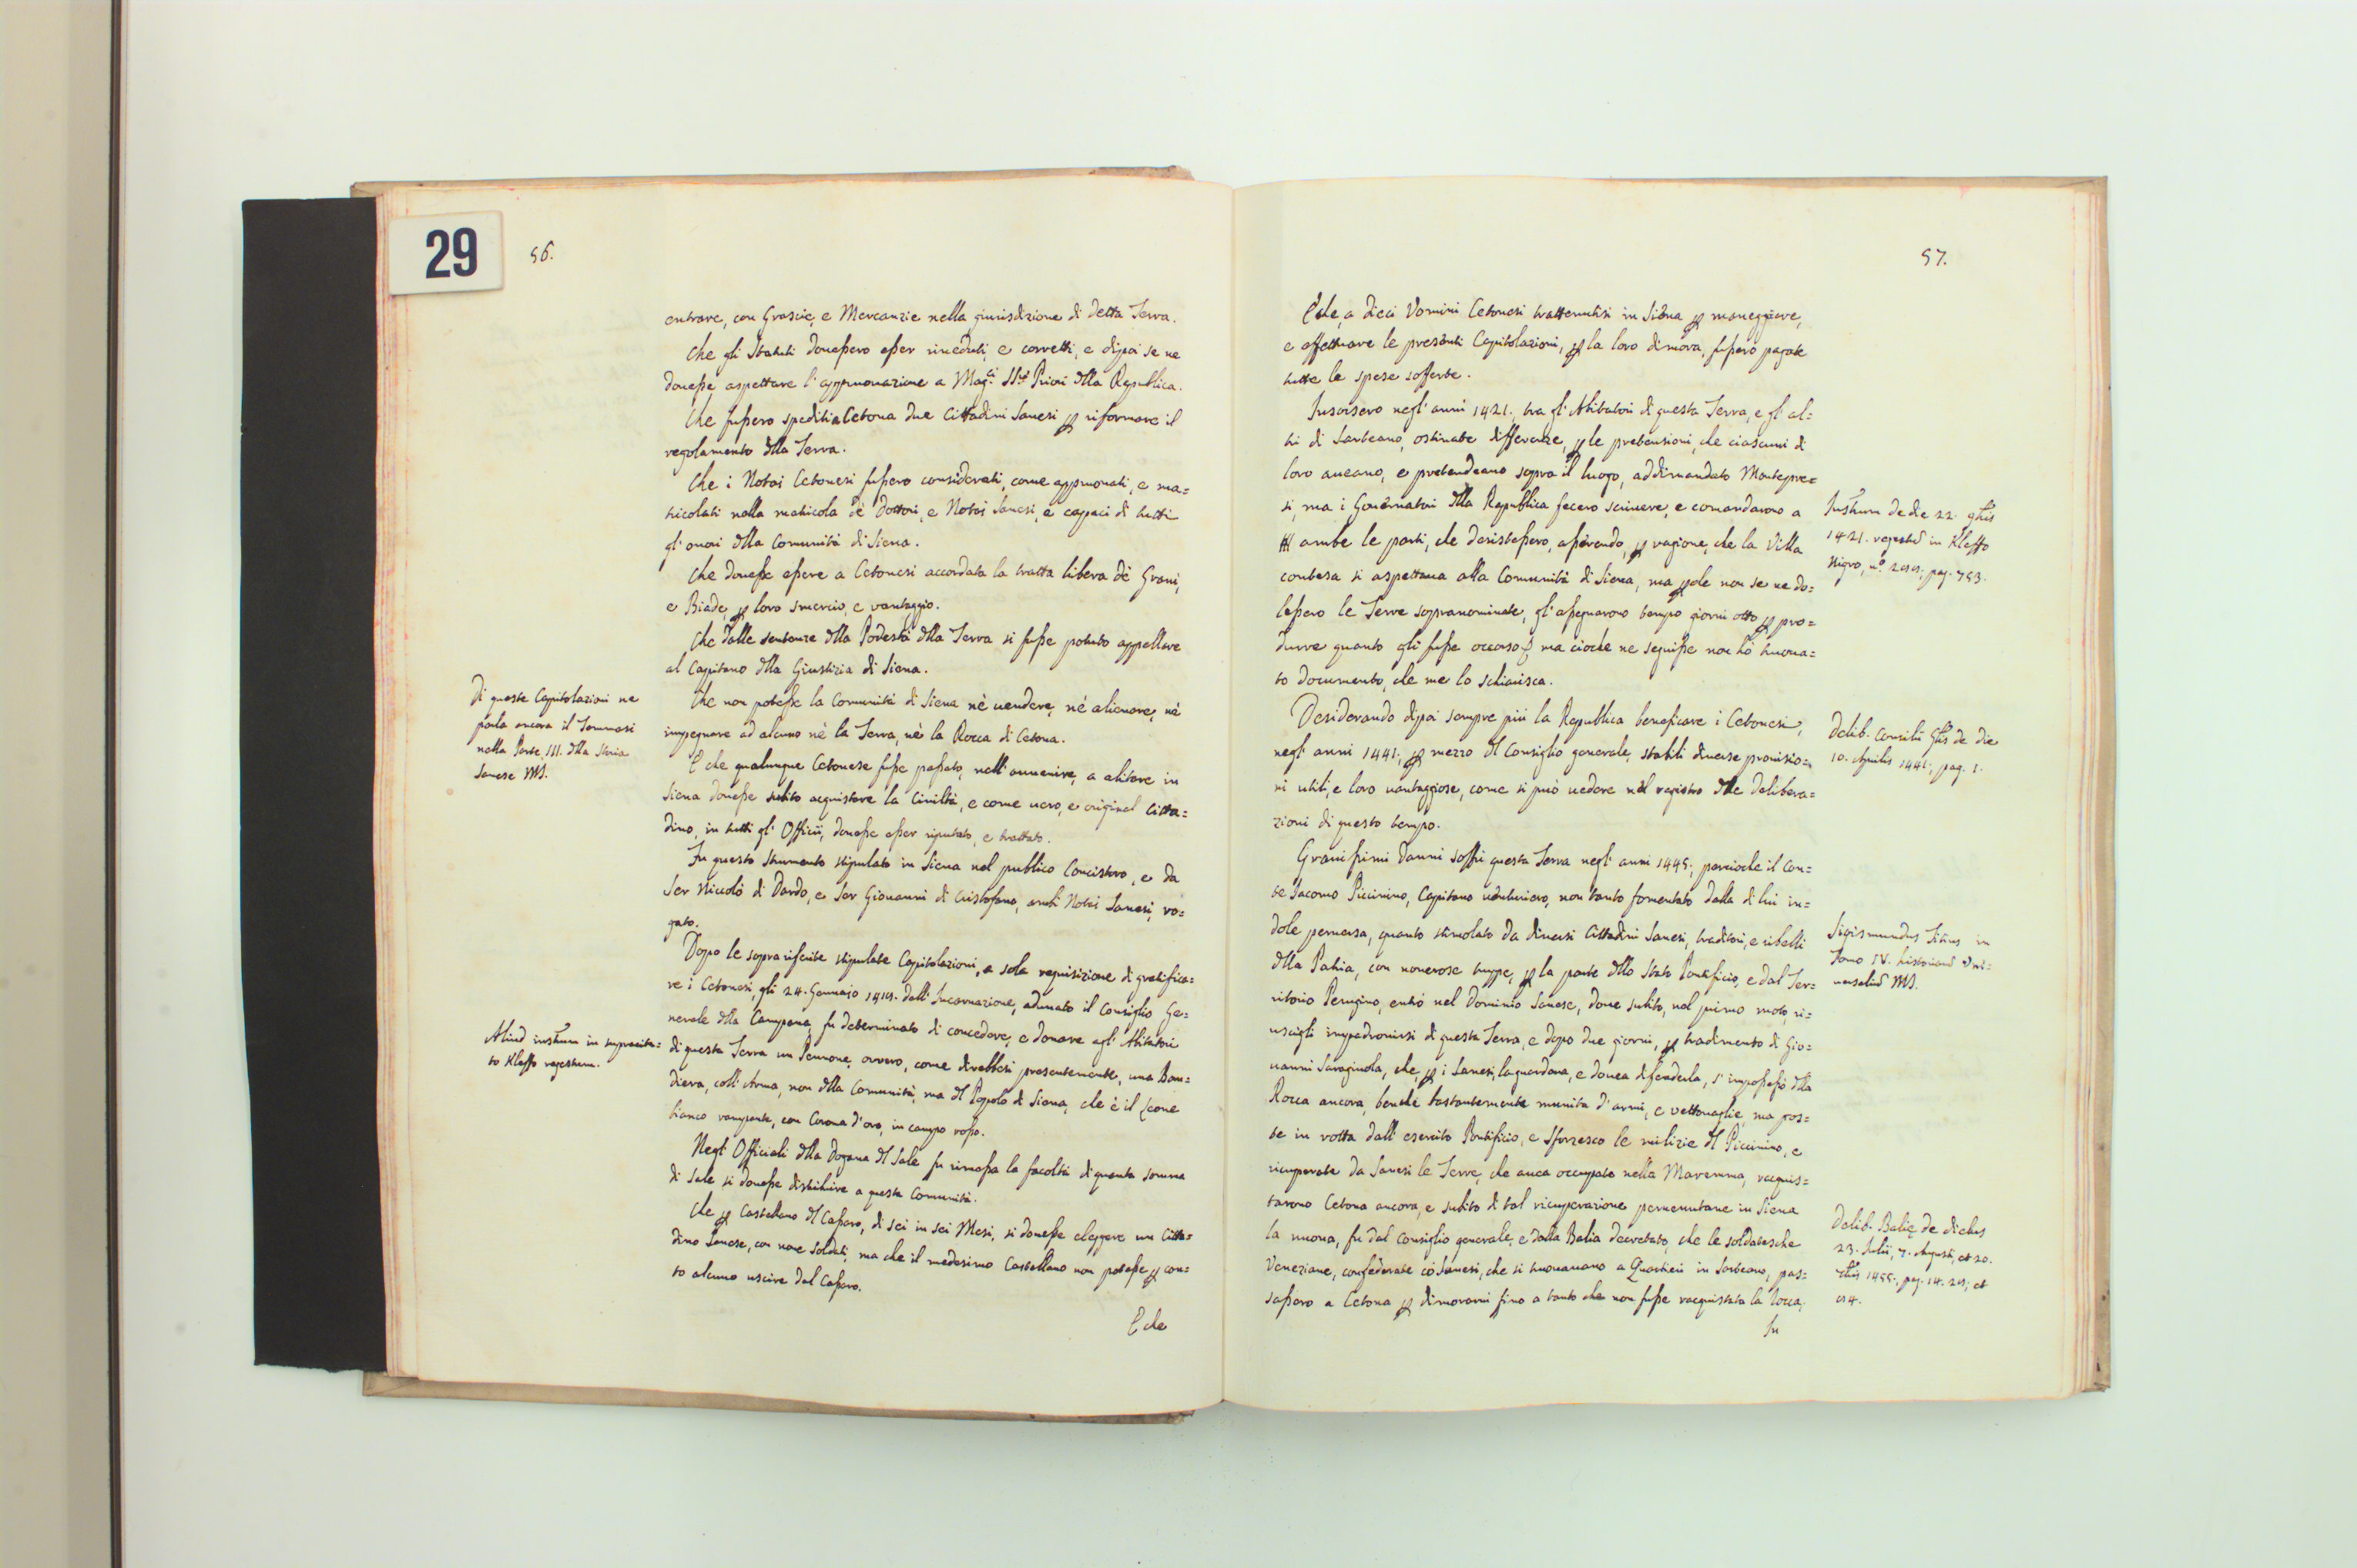 29
56.
entrare, con Grascie, e Mercanzie nella giurisdizione di detta Terra.
Che gli Statuti douessero esser riueduti, e corretti, e dipoi se ne
douesse aspettare l'appruouazione a Mag.ci SS.ri Priori dlla Republica.
Che fussero spediti a Cetona due Cittadini Sanesi p riformare il
regolamento dlla Terra.
Che i Notai Cetonesi fussero considerati, come appruouati, e ma=
tricolati nella matricola de' Dottori, e Notai Sanesi, e capaci di tutti
gl'onori dlla Comunità di Siena.
Che douesse essere a Cetonesi accordata la tratta libera de' Grani,
e Biade, p loro smercio, e vantaggio.
Che dalle sentenze dlla Podestà dlla Terra si fusse potuto appellare
al Capitano dlla Giustizia di Siena.
Che non potesse la Comunità di Siena nè uendere, nè alienare, nè
impegnare ad alcuno nè la Terra, nè la Rocca di Cetona.
E che qualunque Cetonese fusse passato, nell'auuenire, a abitare in
Siena douesse subito acquistare la Ciuiltà, e come uero, e original Citta=
dino, in tutti gl'Officii, douesse esser riputato, e trattato.
Fu questo strumento stipulato in Siena nel publico Concistoro, e da
Ser Niccolò di Dardo, e Ser Giouanni di Cristofano, amb Notai Sanesi, ro=
gato.
Dopo le sopra riferite stipulate Capitolazioni, a sola requisizione di gratifica=
re i Cetonesi, gli 24. Gennajo dell'Incarnazione, adunato il Consiglio Ge=
nerale dlla Campana, fu determinato di concedere, e donare agl'Abitatori
di questa Terra un Pennone, ovvero, come direbbesi presentemente, una Ban=
diera, coll'Arma, non dlla Comunità, ma dl Popolo di Siena, che è il Leone
bianco rampante, con Corona d'oro, in campo rosso.
Negl'Officiali dlla Dogana dl Sale fu rimossa la facoltà di quanta somma
di Sale si douesse distribuire a questa Comunità.
Che p Castellano dl Cassaro, di sei in sei Mesi, si douesse eleggere un Citta=
dino Sanese, con noue Soldati, ma che il medesimo Castellano non potesse p con=
to alcuno uscire dal Cassaro.
E che
Di queste Capitolazioni ne
parla ancora il Tommasi
nella Parte III. dlla Storia
Sanese MS.
Aliud instrum in supracita=
to Kleffo regestum.
57.
E che, a dieci Vomini Cetonesi trattenutisi in Siena p maneggiare,
e effettuare le presenti Capitolazioni, p la loro dimora, fussero pagate
tutte le spese sofferte.
Insorsero negl'anni 1421. tra gl'Abitatori di questa Terra, e gl'al=
tri di Sarteano, ostinate differenze, p le pretensioni, che ciascuni di
loro aueano, e pretendeano sopra il luogo, addimandato Montepre=
si, ma i Gouernatori dlla Republica fecero scriuere, e comandarono a
ambe le parti, che desistessero, asserendo, p ragione, che la Villa
contesa si aspettaua alla Comunità di Siena, ma p che non se ne do=
lessero le Terre sopranominate, gl'assegnarono tempo giorni otto p pro=
durre quanto gli fusse occorso; ma ciocche ne seguisse non hò truoua=
to documento, che me lo schiarisca.
Desiderando dipoi sempre più la Republica beneficare i Cetonesi,
negl'anni 1441., p mezzo dl Consiglio generale, stabilì diuerse prouisio=
ni utili, e loro uantaggiose, come si può uedere nel registro dlle delibera=
zioni di questo tempo.
Grauissimi danni soffrì questa Terra negl'anni 1445; percioche il Con=
te Jacomo Piccinino, Capitano uenturiero, non tanto fomentato dalla di lui in=
dole peruersa, quanto stimolato da diuersi Cittadini Sanesi, traditori, e ribelli
dlla Patria, con nouerose truppe, p la parte dllo Stato Pontificio, e dal Ter=
ritorio Perugino, entrò nel Dominio Sanese, doue subito, nel primo moto, ri=
uscigli impadronirsi di questa Terra, e dopo due giorni, p tradimento di Gio=
uanni Saraginola, che, p i Sanesi, la guardaua, e douea difenderla, s'impossessò dlla
Rocca ancora, benchè bastantemente munita d'armi, e vettouaglie, ma pos=
te in rotta dall'esercito Pontificio, e Sforzesco le milizie dl Piccinino, e
ricuperate da Sanesi le Terre, che auea occupato nella Maremma, racquis=
tarono Cetona ancora, e subito di tal ricuperazione peruenutane in Siena
la nuoua, fu dal Consiglio generale, e dalla Balìa decretato, che le soldatesche
Veneziane, confederate co' Sanesi, che si truouauano a Quartieri in Sarteano, pas=
sassero a Cetona p dimorarui fino a tanto che non fusse racquistata la Rocca.
Fu
Instrum de die 22.
1421. regestũ in Kleffo
Nigro, n.°
Delib. Consilii Glis de die
10. Aprilis 1441., pag. 1.
Sigismundus Titius in
Tomo IV. historiarũ Vni=
uersaliũ MS.
Delib. Balię de diebus
23. Julii, 7. Augusti, et 20.
1455., pag. 14.